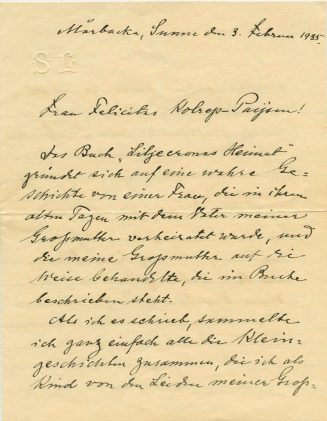 Mårbacka, Sunne den 3. Februar 1935.
S L
Frau Felicitas Kolrep-Paijsen!
Das Buch „Liljecronas Heimat"
gründet sich auf eine wahre Ge-
schichte von einer Frau, die in ihren
alten Tagen mit dem Vater meiner
Großmutter verheiratet wurde, und
die meine Großmutter auf die
Weise behandelte, die im Buche
beschrieben steht.
Als ich es schrieb, sammelte
ich ganz einfach alle die Klein-
geschichten zusammen, die ich als
Kind von den Leiden meiner Groß-